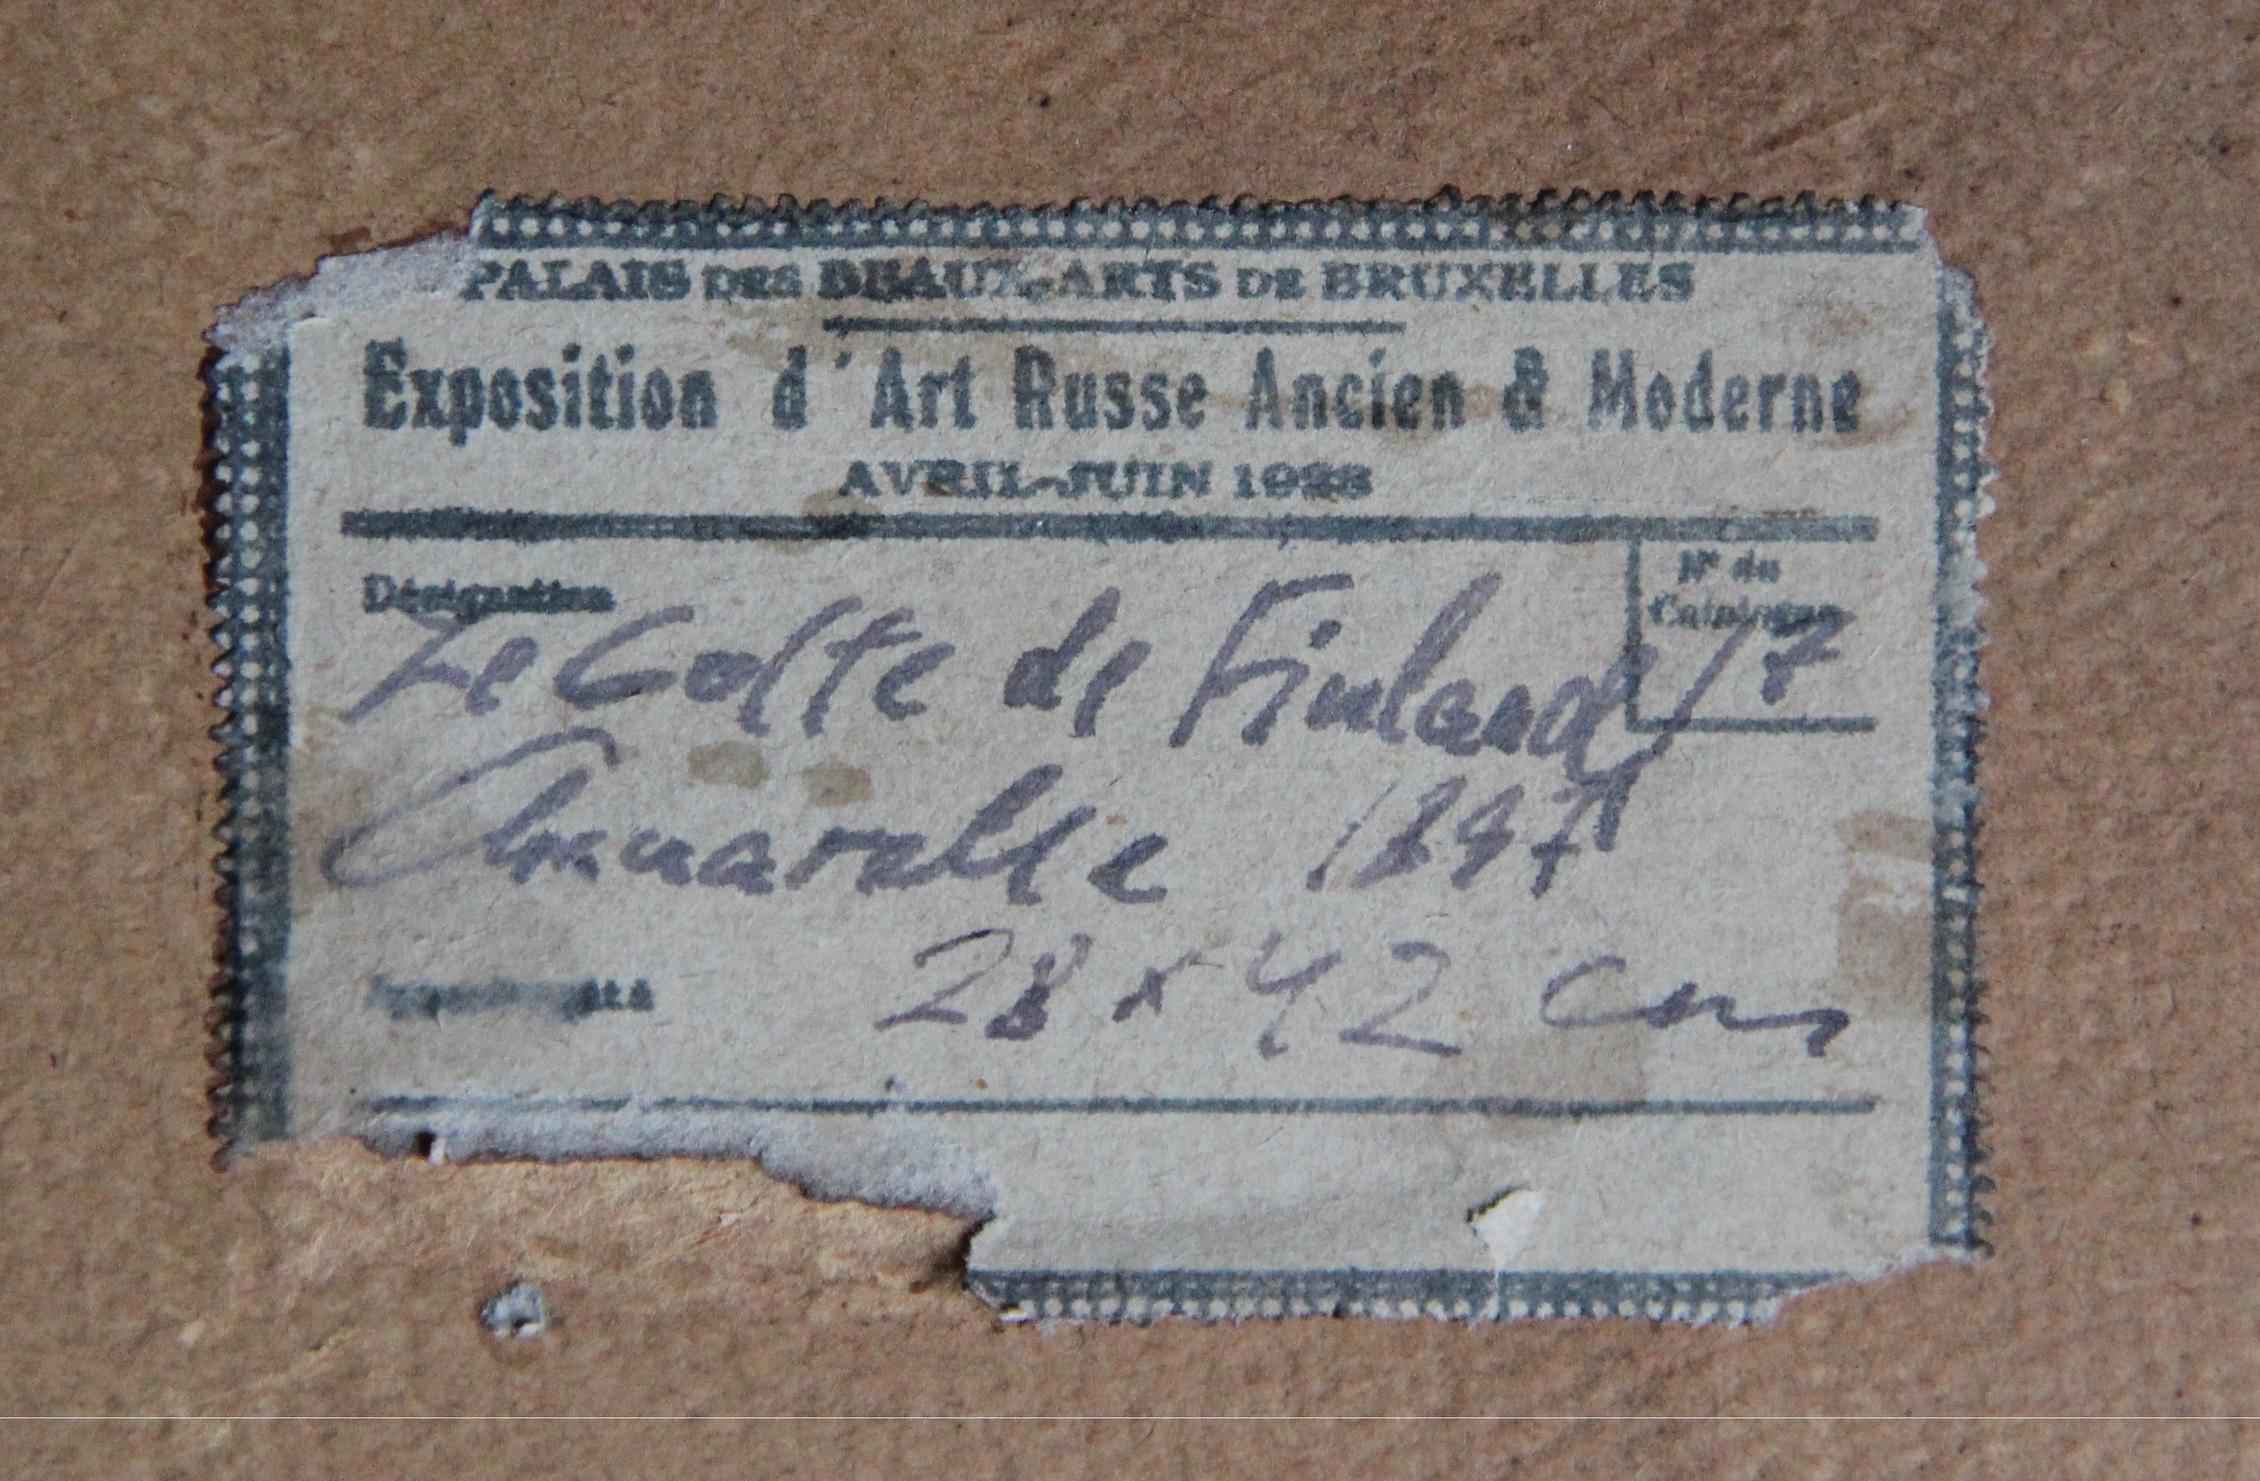 PALAIS DES BEAUX-ARTS DE BRUXELLES
Exposition d'Art Russe Ancien & Moderne
AVRIL-JUIN 1928
Désignation
N° du
Catalogue
Le Golfe de Finland 17
1897
28 x 42 cm